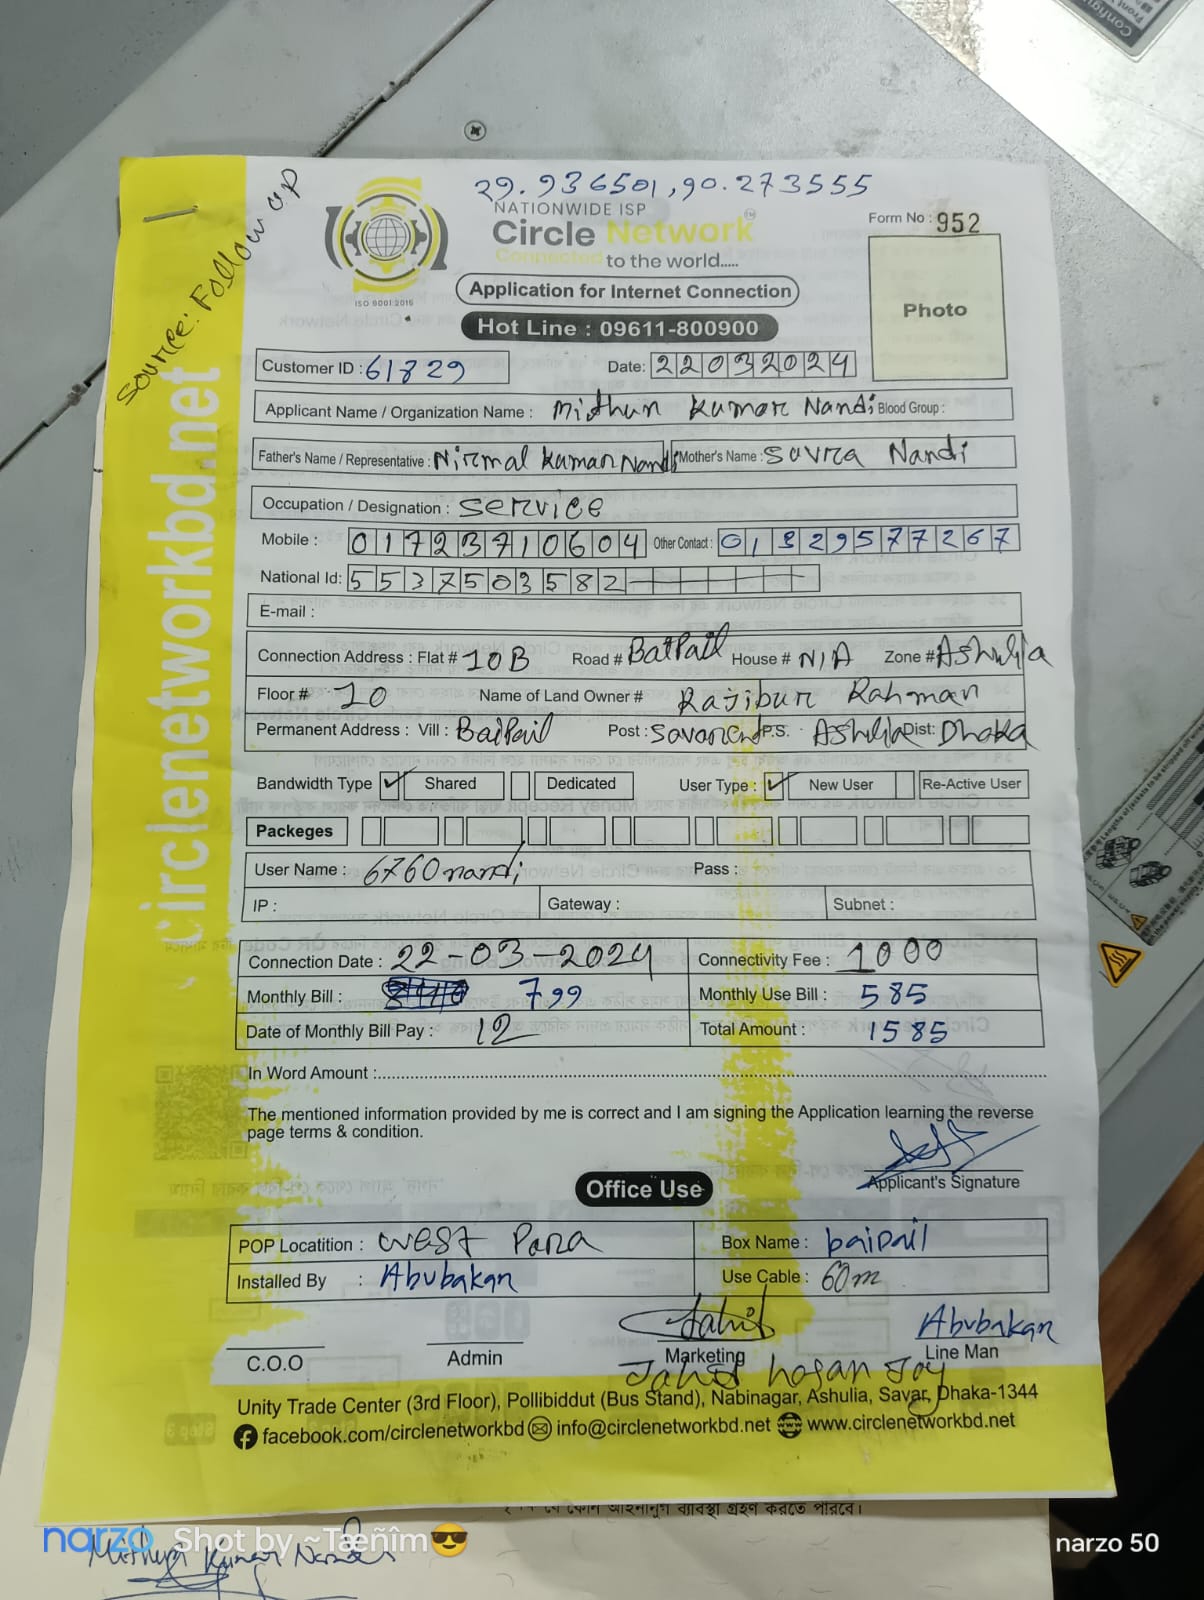 29.936501,90.273555
Source: Follow UP
NATIONWIDE ISP
Circle Network
Connected to the world.....
ISO 9001:2015
Form No : 952
Photo
Application for Internet Connection
Hot Line : 09611-800900
Customer ID : 61829
Date: 22032024
Applicant Name / Organization Name : Mithun Kumar Nandi Blood Group :
Father's Name / Representative : Nirmal Kumar Nandi Mother's Name : Suvra Nandi
Occupation / Designation : Service
Mobile : 01723710604 Other Contact : 01329577267
National Id: 5537503582
E-mail :
Connection Address : Flat # 10B Road # BaiPail House # N/A Zone # Ashulia
Floor # 10 Name of Land Owner # Rajibur Rahman
Permanent Address : Vill : BaiPail Post : P.S. Ashulia Dist: Dhaka
Bandwidth Type ✓ Shared Dedicated User Type : ✓ New User Re-Active User
Packeges
User Name : 6760nandi Pass :
IP : Gateway : Subnet :
Connection Date : 22-03-2024 Connectivity Fee : 1000
Monthly Bill : 799 Monthly Use Bill : 585
Date of Monthly Bill Pay : 12 Total Amount : 1585
In Word Amount :
The mentioned information provided by me is correct and I am signing the Application learning the reverse
page terms & condition.
Applicant's Signature
Office Use
POP Locatition : West Para Box Name : baipail
Installed By : Abubakan Use Cable : 60m
Jahid Abubakan
C.O.O Admin Marketing Line Man
Jahid hasan Joy
Unity Trade Center (3rd Floor), Pollibiddut (Bus Stand), Nabinagar, Ashulia, Savar, Dhaka-1344
facebook.com/circlenetworkbd info@circlenetworkbd.net www.circlenetworkbd.net
circlenetworkbd.net
ব্যবস্থা গ্রহণ করতে পারবে।
narzo Shot by ~Tæñîm😎
narzo 50
Mithun Kumar Nandi